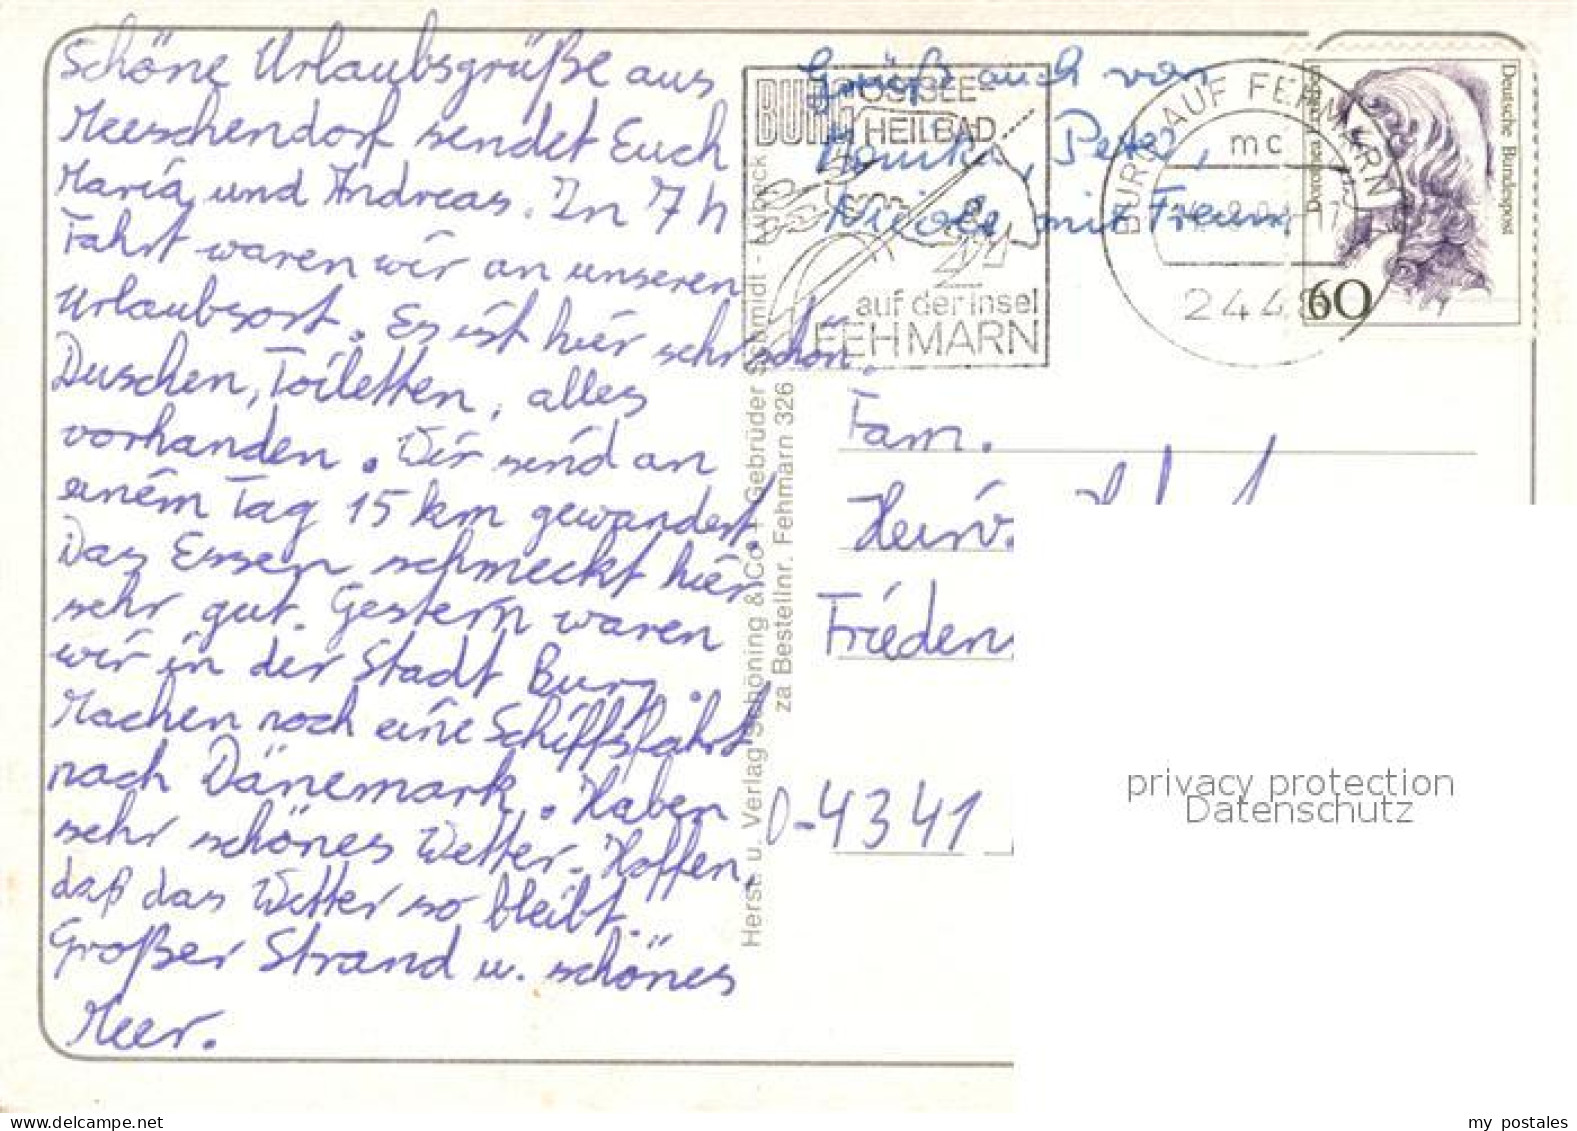 Schöne Urlaubsgrüße aus
Meeschendorf sendet Euch
Maria und Andreas. In 7 h
Fahrt waren wir an unseren
Urlaubsort. Es ist hier sehr schön.
Duschen, Toiletten, alles
vorhanden. Wir sind an
einem Tag 15 km gewandert.
Das Essen schmeckt hier
sehr gut. Gestern waren
wir in der Stadt Burg.
Machen noch eine Schiffsfahrt
nach Dänemark. Haben
sehr schönes Wetter. Hoffen,
daß das Wetter so bleibt.
Großer Strand u. schönes
Meer.
Herst. u. Verlag Schöning & Co + Gebrüder Schmidt - Lübeck
za Bestellnr. Fehmarn 326
Grüß auch von
Monika, Peter,
Nicole mit Freund
BURG
OSTSEE-
HEILBAD
auf der Insel
FEHMARN
BURG AUF FEHMARN
mc
2448
Deutsche Bundespost
60
Fam.
Frieden
D-4341
privacy protection
Datenschutz
my postales